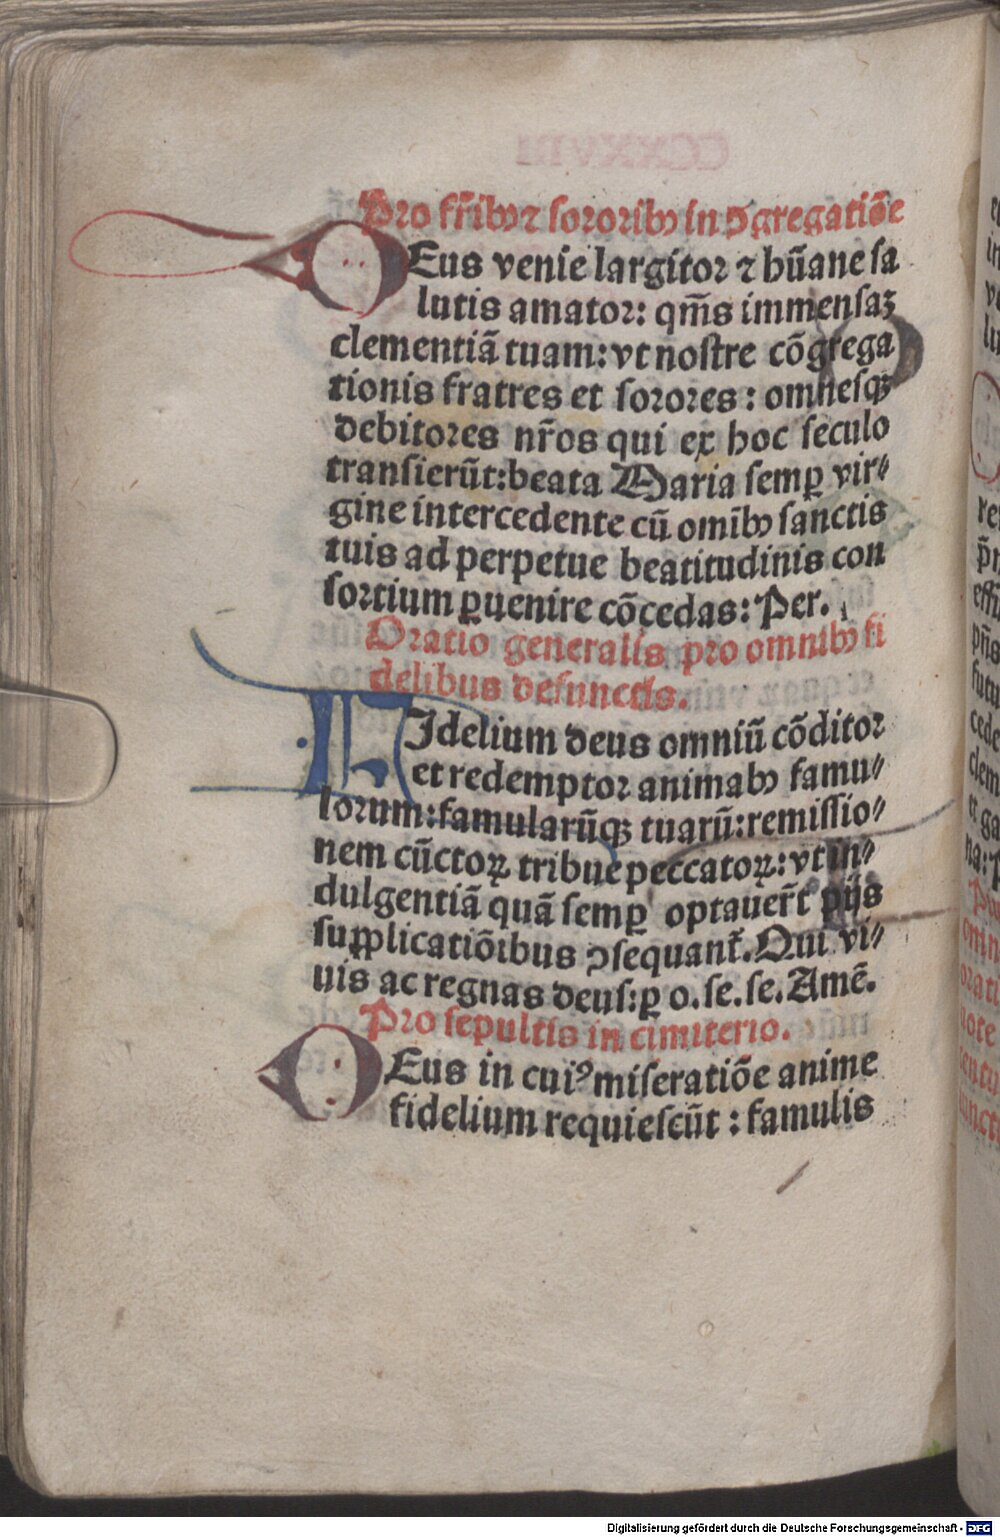 Pro fr̄ibꝰ ⁊ sororibꝰ in ꝯgregatiōe
DEus venie largitor ⁊ hūane sa
lutis amator: qm̄s immensaꝫ
clementiā tuam: vt nostre cōgrega
tionis fratres et sorores: omnesqꝫ
debitores nr̄os qui ex hoc seculo
transierūt: beata Maria semꝑ vir⸗
gine intercedente cū omībꝰ sanctis
tuis ad perpetue beatitudinis con
sortium ꝑuenire cōcedas: Per.
Oratio generalis pro omnibꝰ fi
delibus defunctis.
FIdelium deus omniū cōditor
et redemptor animabꝰ famu⸗
lorum: famularūqꝫ tuarū: remissio⸗
nem cūctoꝝ tribue peccatoꝝ: vt in⸗
dulgentiā quā semꝑ optauer̄t pijs
supplicatiōibus ꝯsequant̄. Qui vi⸗
uis ac regnas deus: ꝑ o. se. se. Amē.
Pro sepultis in cimiterio.
DEus in cuiꝰ miseratiōe anime
fidelium requiescūt: famulis
Digitalisierung gefördert durch die Deutsche Forschungsgemeinschaft - DFG